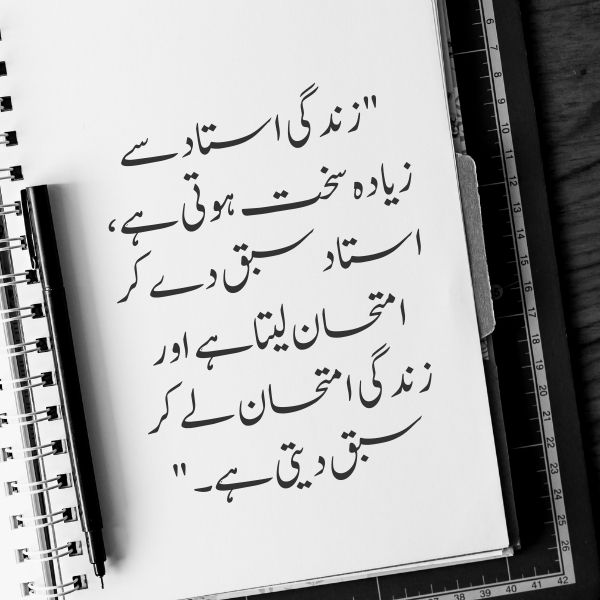 "زندگی استاد سے
زیادہ سخت ہوتی ہے،
استاد سبق دے کر
امتحان لیتا ہے اور
زندگی امتحان لے کر
سبق دیتی ہے۔"
6
9
10
11
12
13
14
15
16
17
18
19
20
21
22
23
24
25
26
38 39 40 41 42